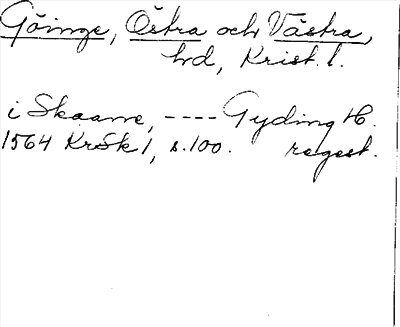 Göinge, Östra och Västra,
hd, Krist. l.
i Skaane, ---- Gyding H.
1564 KrSk 1, s. 100. regest.